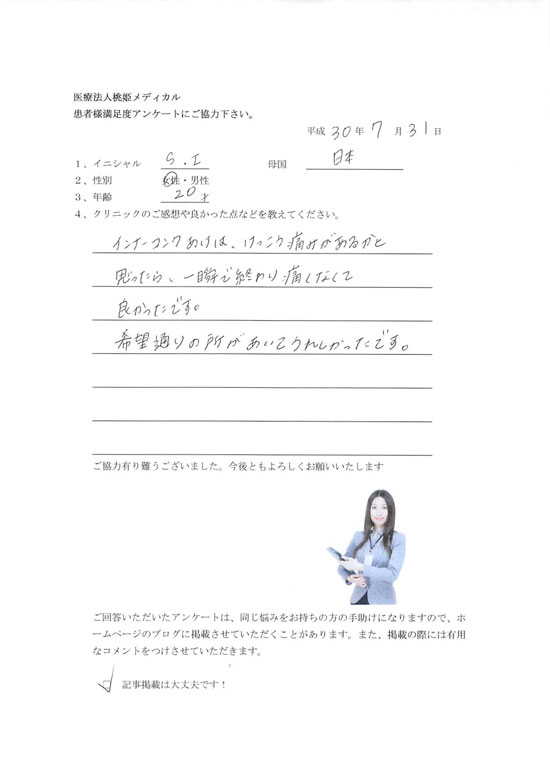 医療法人桃姫メディカル
患者様満足度アンケートにご協力下さい。
平成 30 年 7 月 31 日
1、イニシャル S.I 母国 日本
2、性別 女性・男性
3、年齢 20 才
4、クリニックのご感想や良かった点などを教えてください。
インナーコンクあけは、けっこう痛みがあるかと
思ったら、一瞬で終わり痛くなくて
良かったです。
希望通りの所があいてうれしかったです。
ご協力有り難うございました。今後ともよろしくお願いいたします
ご回答いただいたアンケートは、同じ悩みをお持ちの方の手助けになりますので、ホ
ームページのブログに掲載させていただくことがあります。また、掲載の際には有用
なコメントをつけさせていただきます。
記事掲載は大丈夫です！